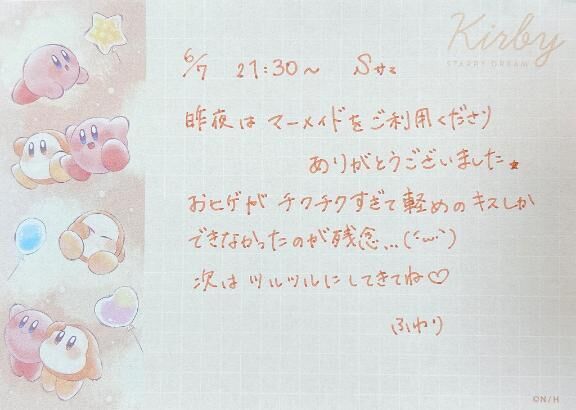 Kirby
STARRY DREAM
6/7 21:30～ Sさま
昨夜は マーメイドをご利用くださり
ありがとうございました★
おヒゲが チクチクすぎて軽めのキスしか
できなかったのが残念…(´･ω･`)
次は ツルツルにしてきてね♡
ふわり
©N/H